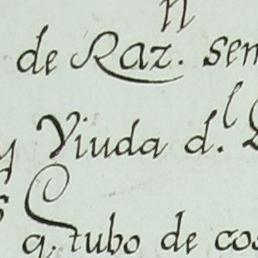 de Raz.n sem
y Viuda d.l
q. tubo de cos